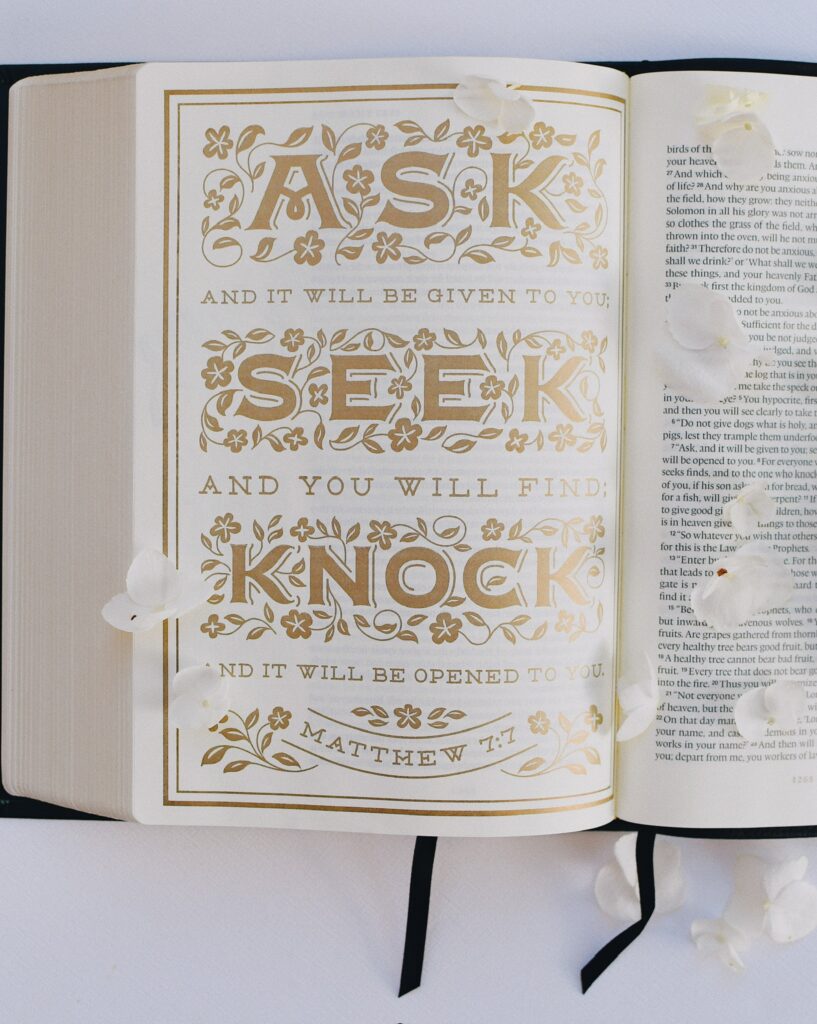 ASK
AND IT WILL BE GIVEN TO YOU;
SEEK
AND YOU WILL FIND;
KNOCK
AND IT WILL BE OPENED TO YOU.
MATTHEW 7:7
birds of
your
27 And which being anxiou
of life? 28 And why are you anxious a
the field, how they grow: they neith
Solomon in all his glory was not arr
so clothes the grass of the field, wh
thrown into the oven, will he not m
faith? 31 Therefore do not be anxious,
shall we drink?' or 'What shall we w
these things, and your heavenly Fat
first the kingdom of God
to you.
not be anxious abo
Sufficient for the d
you be not judged
and w
you see the
log that is in you
me take the speck o
in eye? 5 You hypocrite, firs
and then you will see clearly to take t
6 "Do not give dogs what is holy, an
pigs, lest they trample them underfoo
7 "Ask, and it will be given to you; se
will be opened to you. 8 For everyone
seeks finds, and to the one who knock
of you, if his son for bread, w
for a fish, will 11 If
to give good
is in heaven things to those
12 "So whatever you wish that others
for this is the Law Prophets.
13 "Enter For the
that leads to
gate is
find it
15 who
but ravenous wolves.
fruits. Are grapes gathered from thorn
every healthy tree bears good fruit, bu
18 A healthy tree cannot bear bad fruit,
fruit. 19 Every tree that does not bear go
into the fire. 20 Thus you will
21 "Not everyone
of heaven, but the
22 On that day man
your name, and demons in yo
works in your name?' 23 And then will
you; depart from me, you workers of law